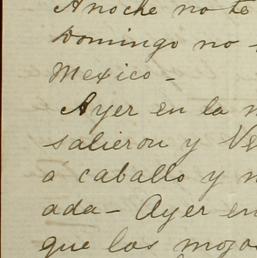 Anoche no te
Domingo no
Mexico-
Ayer en la
salieron y
á caballo y
ada- Ayer en
que los mozos